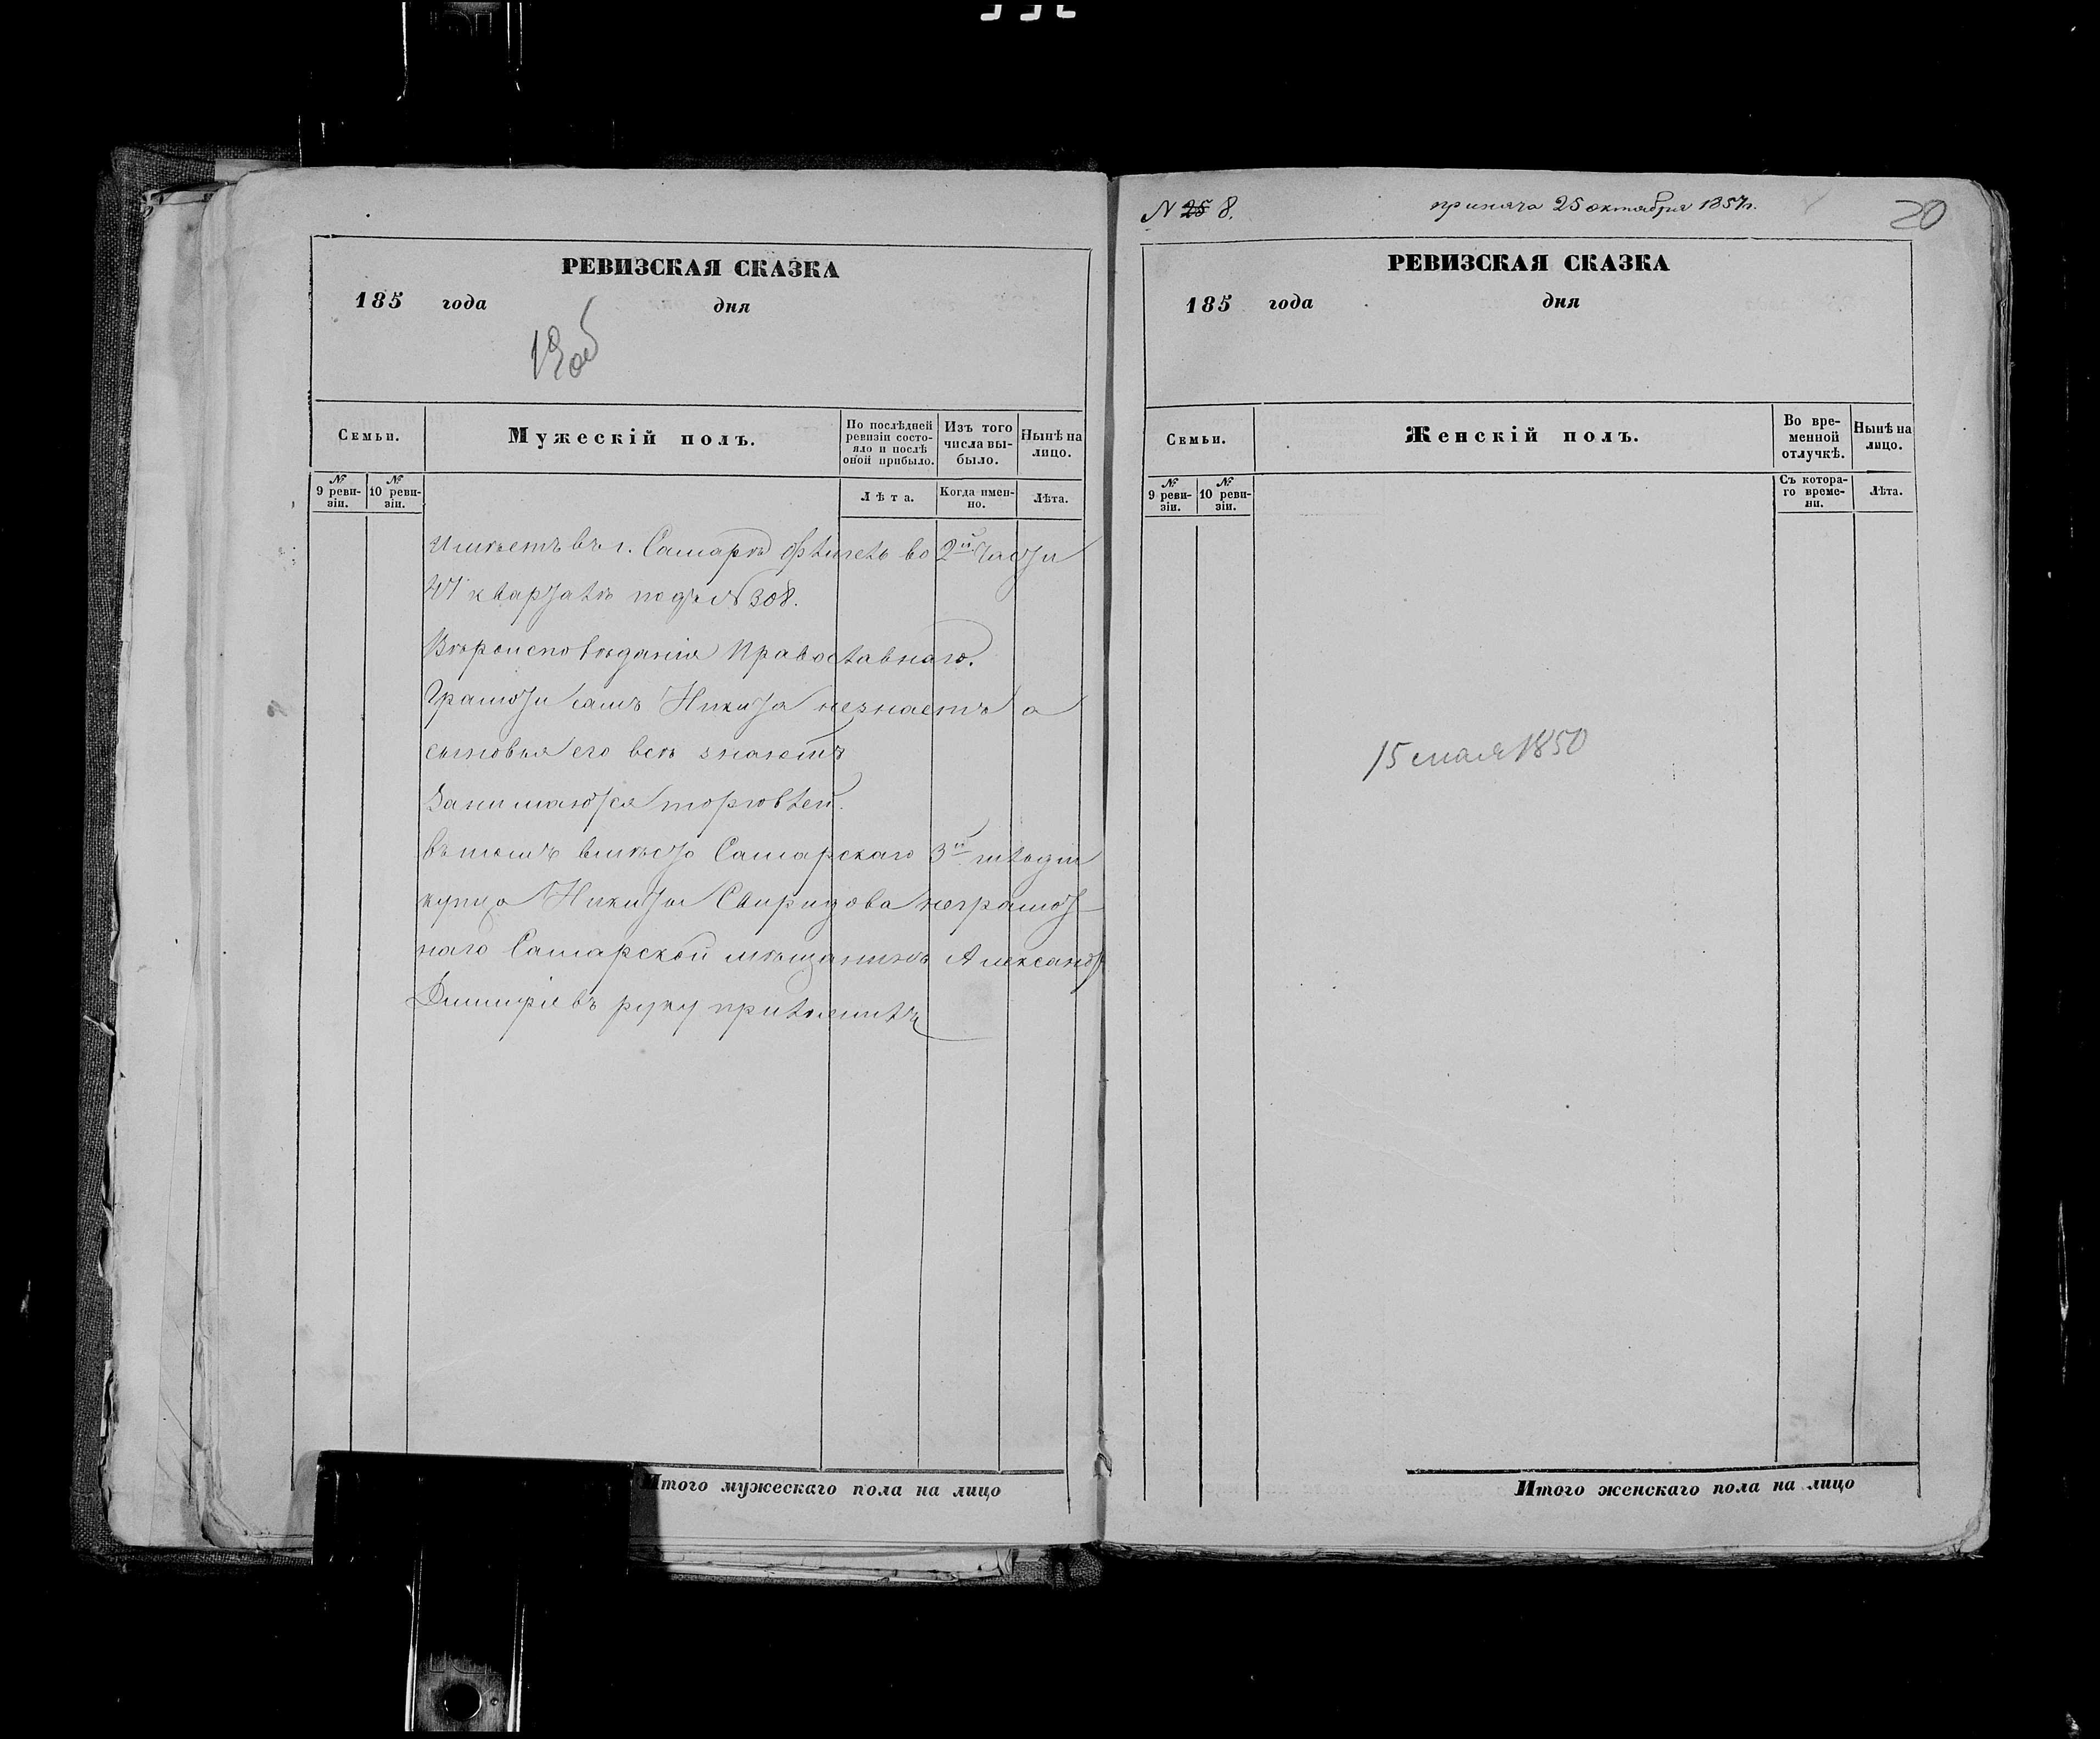 РЕВИЗСКАЯ СКАЗКА
185 года дня
19 об
Семьи.
Мужескій полъ.
По послѣдней ревизіи состояло и послѣ оной прибыло.
Изъ того числа выбыло.
Нынѣ на лицо.
№ 9 ревизіи.
№ 10 ревизіи.
Лѣта.
Когда именно.
Лѣта.
Имѣетъ въ г. Самарѣ флигель во 2й Части
квартатѣ подъ № 308.
Вѣроисповѣданія Православнаго.
Грамоти самъ Никита незнаетъ а
сыновья его всѣ знаютъ
Занимаются торговлей.
Въ томъ вмѣсто Самарскаго 3й гильдіи
купца Никиты Свиридова неграмот-
наго Самарской мѣщанинъ Александръ
Димитріевъ руку приложилъ
Итого мужескаго пола на лицо
N 25 8.
принята 25 октября 1857г.
20
РЕВИЗСКАЯ СКАЗКА
185 года дня
Семьи.
Женскій полъ.
Во временной отлучкѣ.
Нынѣ на лицо.
№ 9 ревизіи.
№ 10 ревизіи.
Съ котораго времени.
Лѣта.
15 мая 1850
Итого женскаго пола на лицо